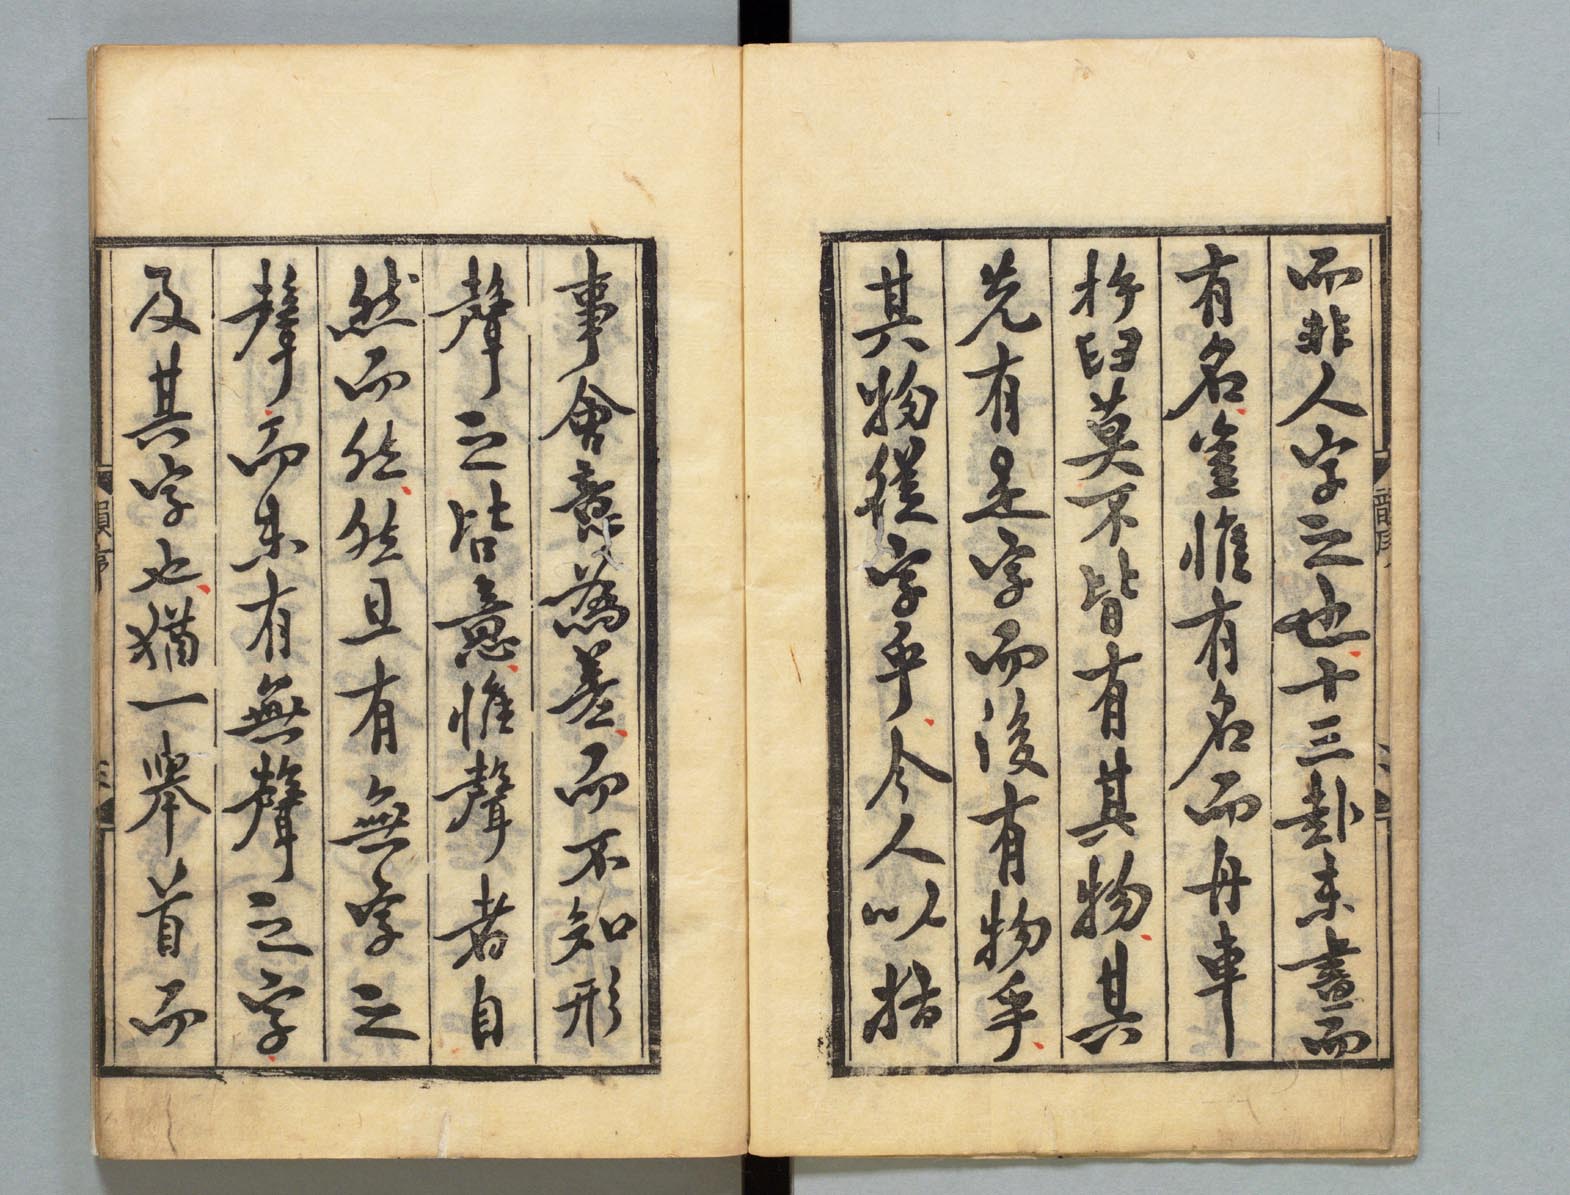 而非人字之也十三卦未畫而
有名奎惟有名而舟車
杵臼莫不皆有其物其
先有是字而後有物乎
其物從字乎今人以指
事會意為差而不知形
聲之皆意惟聲者自
然而然然且有無字之
聲而未有無聲之字
及其字也猶一舉首而
韻序